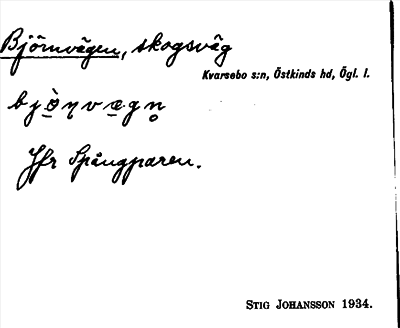 Björnvägen, skogsväg
Kvarsebo s:n, Östkinds hd, Ögl. l.
bjö̠ɳvæ̠gn̥
Jfr Spångparen.
STIG JOHANSSON 1934.